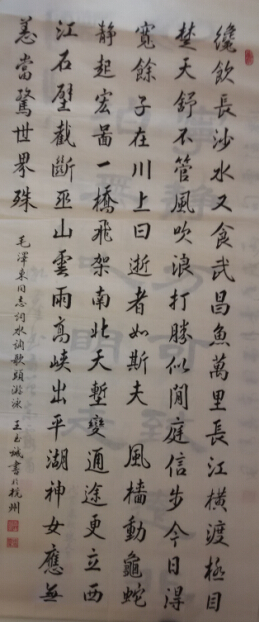 纔飲長沙水又食武昌魚萬里長江橫渡極目
楚天舒不管風吹浪打勝似閒庭信步今日得
寬餘子在川上曰逝者如斯夫 風檣動龜蛇
靜起宏圖一橋飛架南北天塹變通途更立西
江石壁截斷巫山雲雨高峽出平湖神女應無
恙當驚世界殊
毛澤東同志詞水調歌頭游泳 王玉誠書於杭州